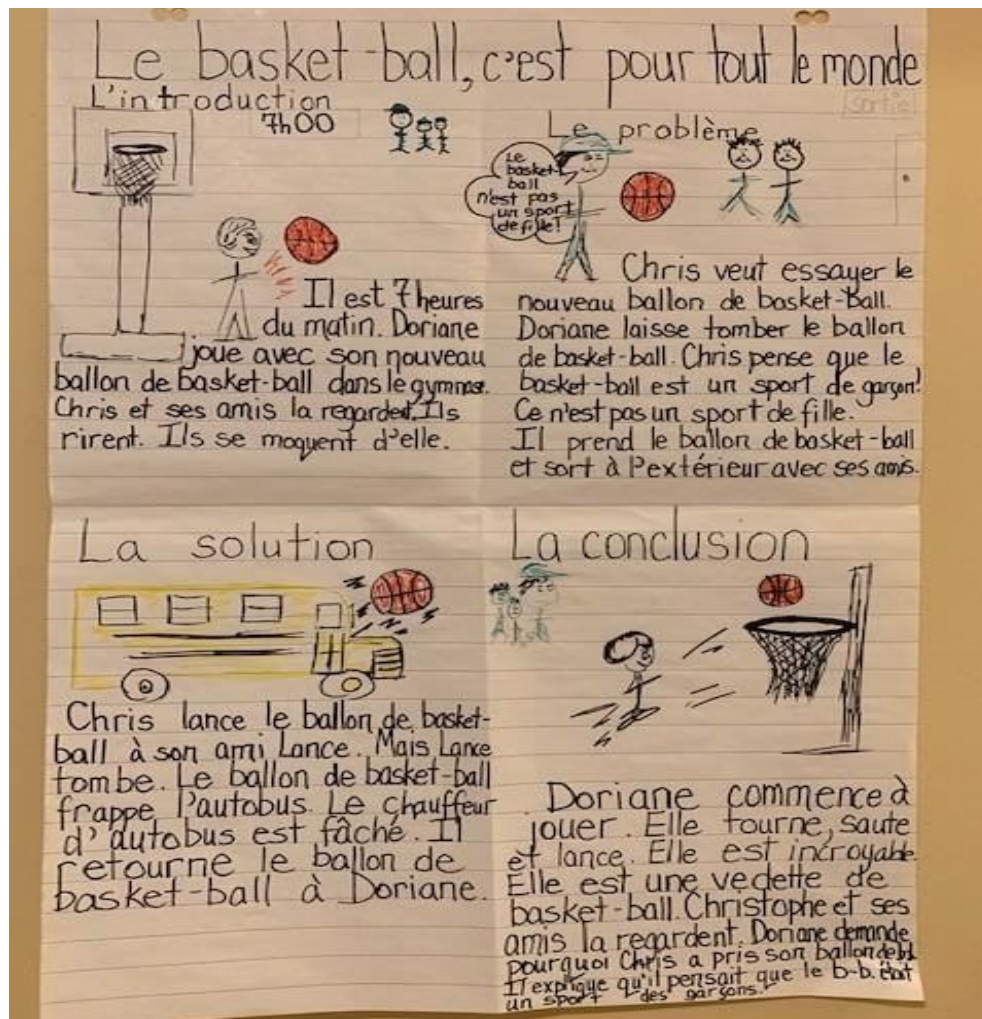 Le basket-ball, c'est pour tout le monde
L'introduction
7h00
Il est 7 heures
du matin. Doriane
joue avec son nouveau
ballon de basket-ball dans le gymnase.
Chris et ses amis la regardent. Ils
rirent. Ils se moquent d'elle.
sortie
Le problème
Le
basket-
ball
n'est pas
un sport
de fille!
Chris veut essayer le
nouveau ballon de basket-ball.
Doriane laisse tomber le ballon
de basket-ball. Chris pense que le
basket-ball est un sport de garçon!
Ce n'est pas un sport de fille.
Il prend le ballon de basket-ball
et sort à l'extérieur avec ses amis.
La solution
Chris lance le ballon de basket-
ball à son ami Lance. Mais Lance
tombe. Le ballon de basket-ball
frappe l'autobus. Le chauffeur
d'autobus est fâché. Il
retourne le ballon de
basket-ball à Doriane.
La conclusion
Doriane commence à
jouer. Elle tourne, saute
et lance. Elle est incroyable.
Elle est une vedette de
basket-ball. Christophe et ses
amis la regardent. Doriane demande
pourquoi Chris a pris son ballon de b.b.
Il explique qu'il pensait que le b-b. était
un sport des garçons.